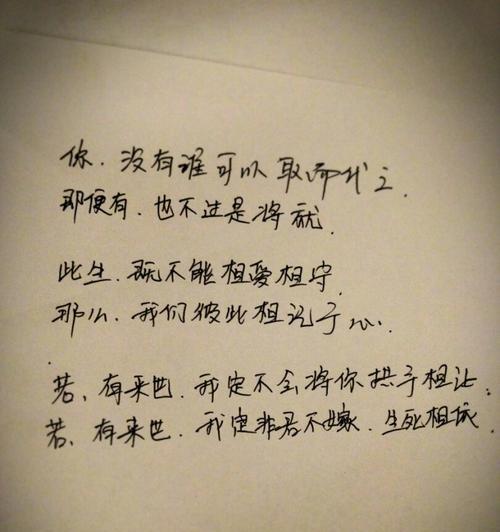 你.没有谁可以取而代之.
即便有.也不过是将就.
此生.既不能相爱相守.
那么.我们彼此相记于心.
若、有来世.我定不会将你拱手相让.
若、有来世.我定非君不嫁.生死相依.